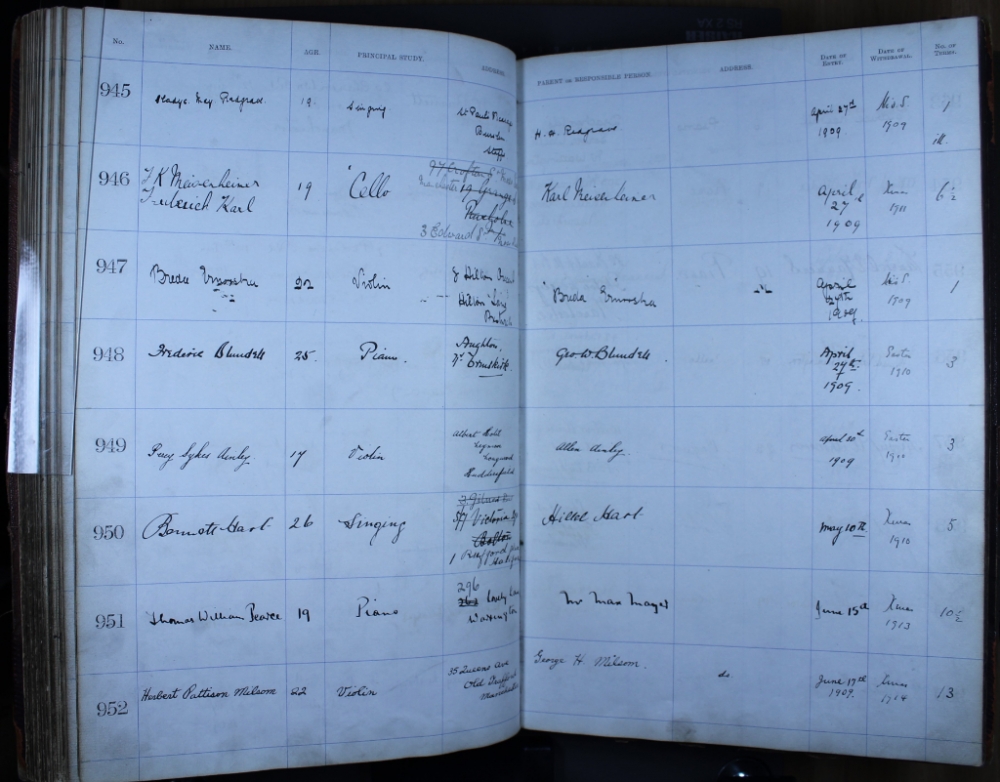 No. NAME. AGE. PRINCIPAL STUDY. ADDRESS. PARENT OR RESPONSIBLE PERSON. ADDRESS. DATE OF ENTRY. DATE OF WITHDRAWAL. NO. OF TERMS.
945 Gladys May Redgrave 19 Singing St Pauls
Burslem
Staffs
H. Redgrave April 27th
1909
Mids.
1909
1
ill.
946 F K Neisenheiner
Frederick Karl
19 Cello
Rusholme
3 Edward St
Karl Neisenheiner April
27
1909
Xmas
1911
6½
947 Breda 22 Violin
Breda April
1909
Mids.
1909
1
948 Frederic Blundell 25 Piano. Aughton,
Nr Ormskirk.
Geo. W. Blundell April
29th
1909.
Easter
1910
3
949 Percy Sykes Ainley 17 Violin Albert Hotel
Longwood
Huddersfield
Allen Ainley. April 30th
1909
Easter
1910
3
950 Bennett Hart 26 Singing
Victoria
Bolton
1
Hart May 10th Xmas
1910
5
951 Thomas William Pearce 19 Piano 296
Lovely Lane
Warrington
Mr Max Mayer June 15th Xmas
1913
10½
952 Herbert Pattison Milsom 22 Violin 35 Queens Ave
Old Trafford
Manchester
George H. Milsom. do June 17th
1909.
Xmas
1914
13